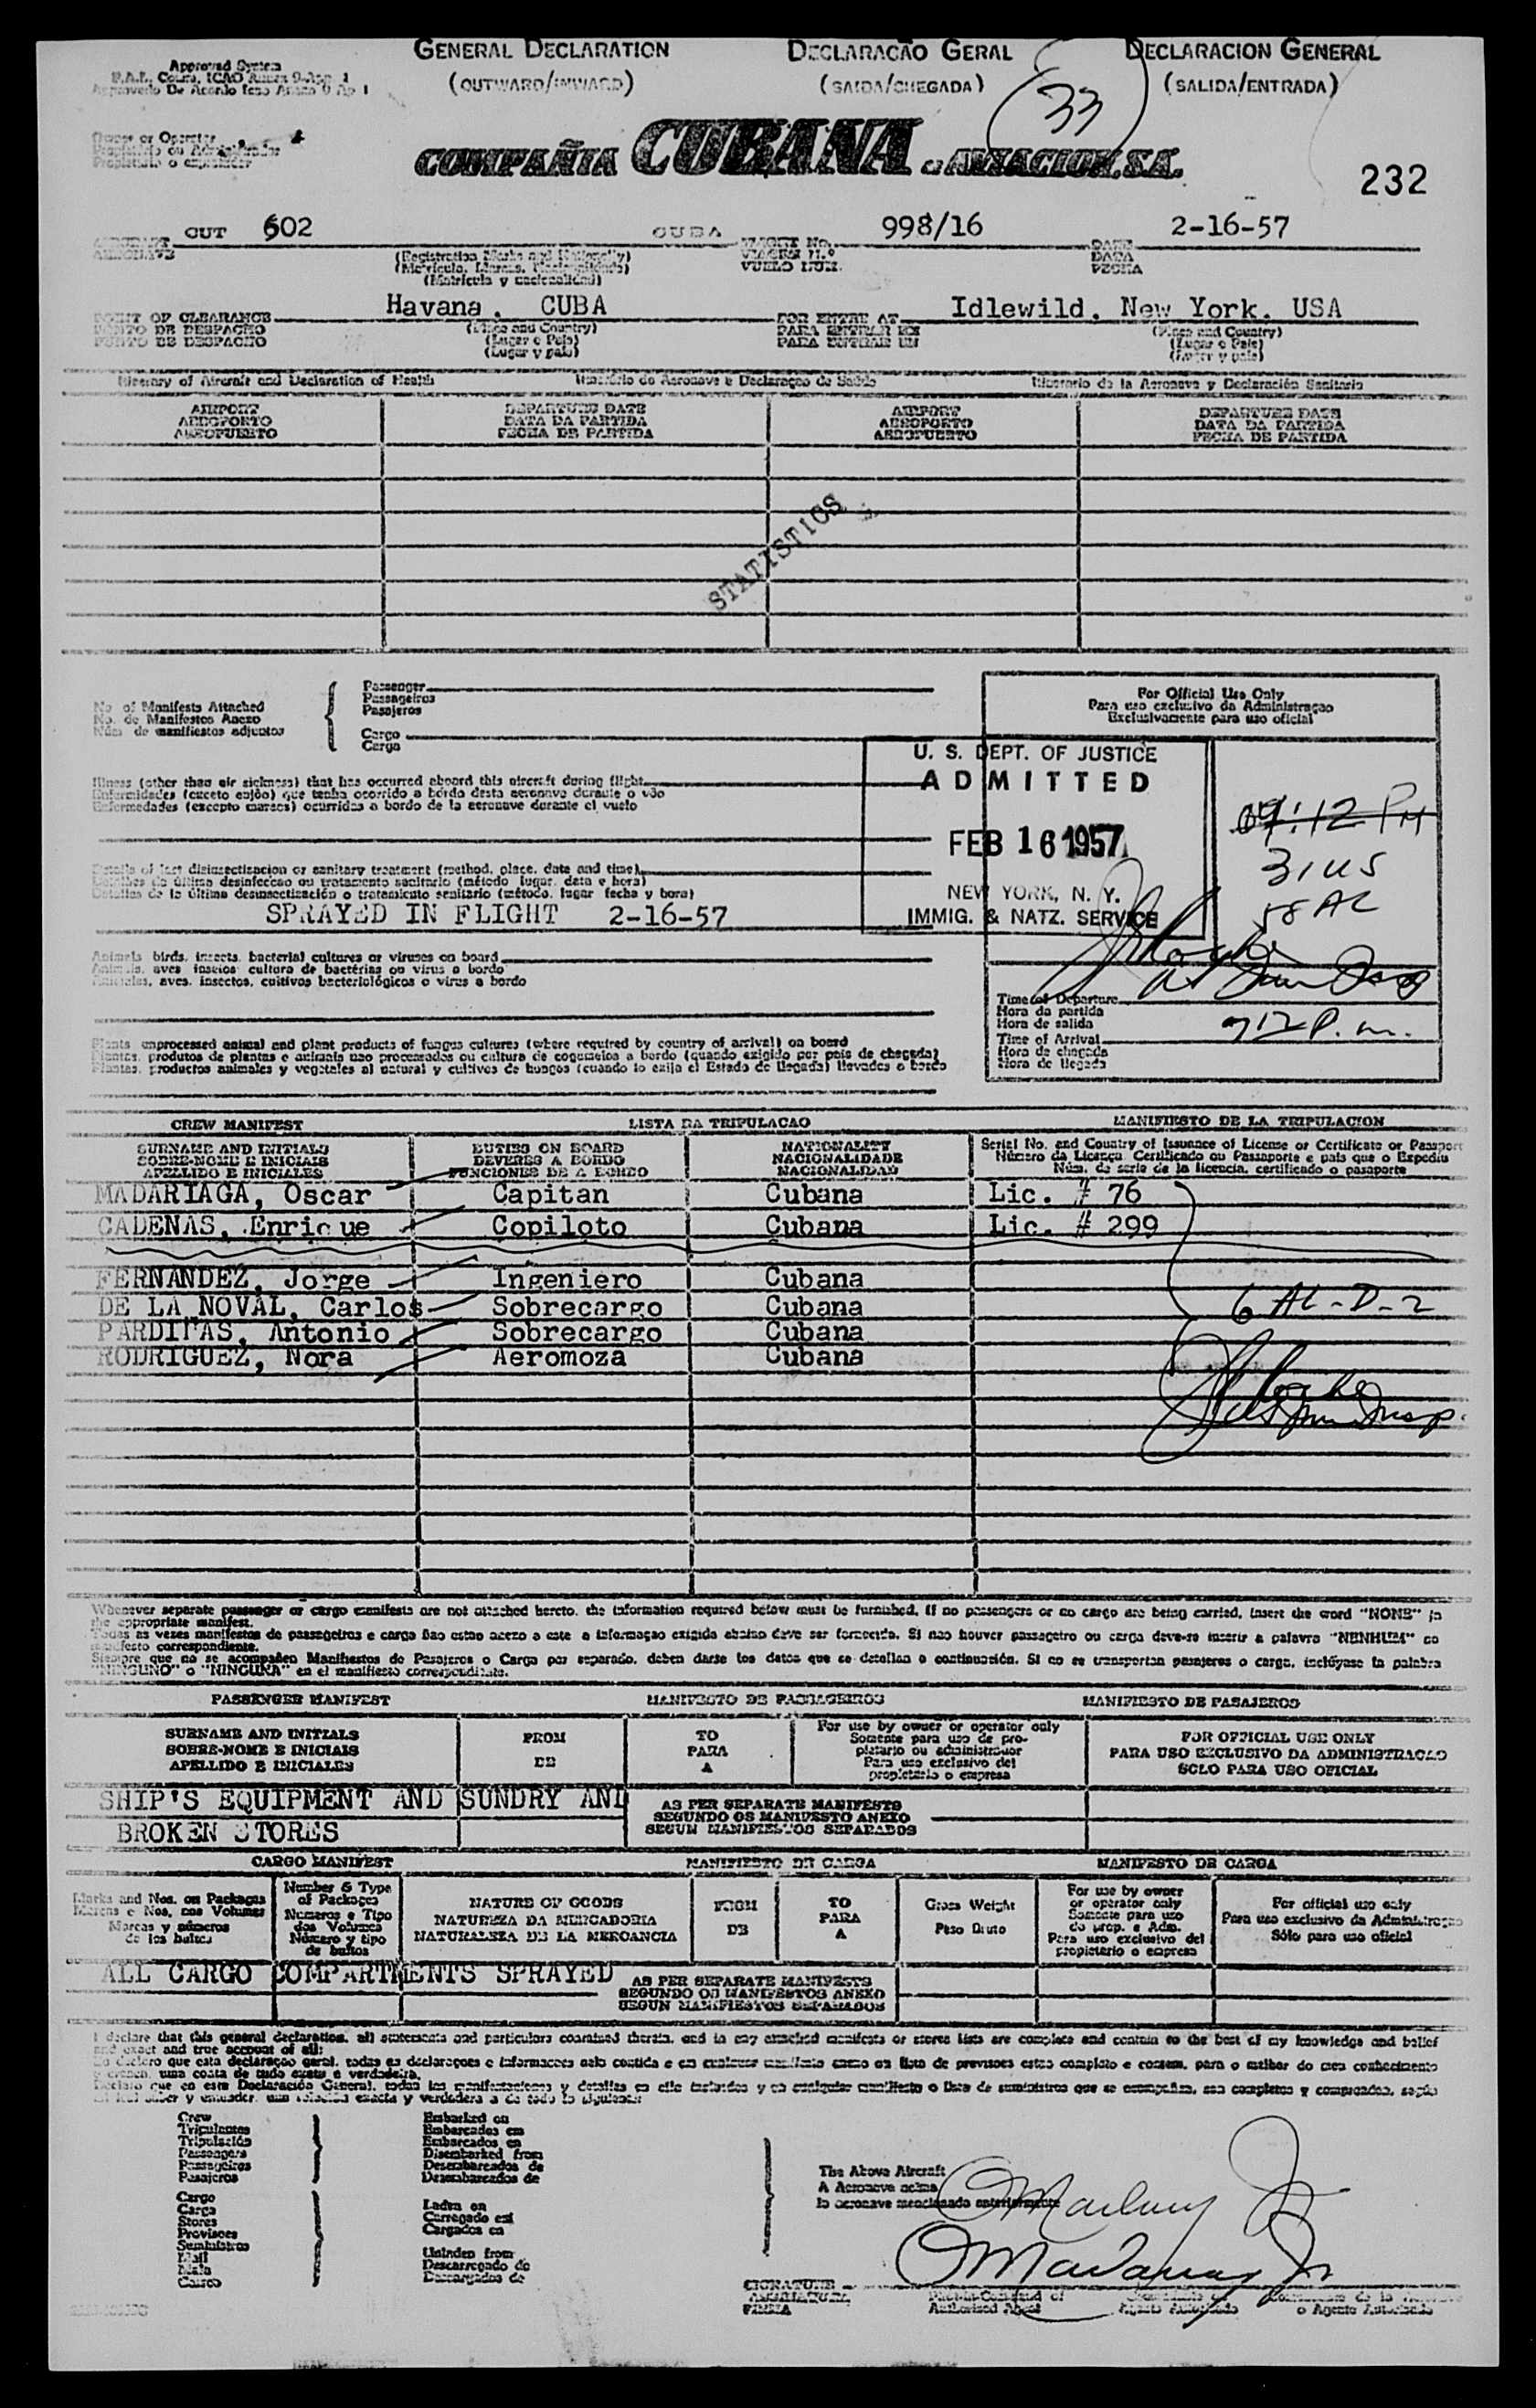 GENERAL DECLARATION DECLARACÃO GERAL DECLARACION GENERAL
(OUTWARD/INWARD) (SAIDA/CHEGADA) (SALIDA/ENTRADA)
Approved System
33
COMPAÑIA CUBANA de AVIACION, S.A.
232
CUT 602 CUBA 998/16 2-16-57
(Registration Marks and Nationality)
(Matricula y nacionalidad)
VUELO NUM. FECHA
Havana, CUBA Idlewild, New York, USA
POINT OF CLEARANCE (Place and Country) FOR ENTRY AT (Place and Country)
PONTO DE DESPACHO (Lugar e Pais) PARA ENTRAR EM (Lugar e Pais)
PUNTO DE DESPACHO (Lugar y pais) PARA ENTRAR EN (Lugar y pais)
Itinerary of Aircraft and Declaration of Health Itinerário do Aeronave e Declaraçao de Saúde Itinerario de la Aeronave y Declaración Sanitaria
AIRPORT DEPARTURE DATE AIRPORT DEPARTURE DATE
AEROPORTO DATA DA PARTIDA AEROPORTO DATA DA PARTIDA
AEROPUERTO FECHA DE PARTIDA AEROPUERTO FECHA DE PARTIDA
STATISTICS
No of Manifests Attached
No. de Manifestos Anexo
Núm. de manifiestos adjuntos
Passenger
Passageiros
Pasajeros
Cargo
Carga
For Official Use Only
Para uso exclusivo da Administraçao
Exclusivamente para uso oficial
U. S. DEPT. OF JUSTICE
ADMITTED
FEB 16 1957
NEW YORK, N. Y.
IMMIG. & NATZ. SERVICE
07:12 PM
31 US
58 AL
Illness (other than air sickness) that has occurred aboard this aircraft during flight
Enfermidades (exceto enjôo) que tenha ocorrido a bórdo desta aeronave durante o vôo
Enfermedades (excepto mareos) ocurridas a bordo de la aeronave durante el vuelo
Details of last disinsectisacion or sanitary treatment (method, place, date and time)
Detalhes da última desinfeccao ou tratamento sanitario (método lugar, data e hora)
Detalles de la última desinsectización o tratamiento sanitario (método, lugar fecha y hora)
SPRAYED IN FLIGHT 2-16-57
Animals birds, insects, bacterial cultures or viruses on board
Animais, aves insetos cultura de bactérias ou virus a bordo
Animales, aves, insectos, cultivos bacteriológicos o virus a bordo
Time of Departure
Hora da partida
Hora de salida
Time of Arrival
Hora de chegada
Hora de llegada
712 P.m.
Plants unprocessed animal and plant products of fungus cultures (where required by country of arrival) on board
Plantas, produtos de plantas e animais nao processados ou cultura de cogumelos a bordo (quando exigido por pais de chegada)
Plantas, productos animales y vegetales al natural y cultivos de hongos (cuando lo exija el Estado de llegada) llevados a bordo
CREW MANIFEST LISTA DA TRIPULACAO MANIFIESTO DE LA TRIPULACION
SURNAME AND INITIALS DUTIES ON BOARD NATIONALITY Serial No. and Country of Issuance of License or Certificate or Passport
SOBRE-NOME E INICIAIS DEVERES A BORDO NACIONALIDADE Número da Licença Certificado ou Passaporte e pais que o Expediu
APELLIDO E INICIALES FUNCIONES DE A BORDO NACIONALIDAD Núm. de serie de la licencia, certificado o pasaporte
MADARIAGA, Oscar Capitan Cubana Lic. # 76
CADENAS, Enrique Copiloto Cubana Lic. # 299
FERNANDEZ, Jorge Ingeniero Cubana
DE LA NOVAL, Carlos Sobrecargo Cubana 6 AL-D-2
PARDIÑAS, Antonio Sobrecargo Cubana
RODRIGUEZ, Nora Aeromoza Cubana
Whenever separate passenger or cargo manifests are not attached hereto, the information required below must be furnished. If no passengers or no cargo are being carried, insert the word "NONE" in
the appropriate manifest.
Todas as vezes manifestos de passageiros e carga nao estao anexo a este a informaçao exigida abaixo deve ser fornecida. Si nao houver passageiro ou carga deve-se inserir a palavra "NENHUM" no
manifesto correspondiente.
Siempre que no se acompañen Manifiestos de Pasajeros o Carga por separado, deben darse los datos que se detallan a continuación. Si no se transportan pasajeros o carga, inclúyase la palabra
"NINGUNO" o "NINGUNA" en el manifiesto correspondiente.
PASSENGER MANIFEST MANIFESTO DE PASSAGEIROS MANIFIESTO DE PASAJEROS
SURNAME AND INITIALS FROM TO For use by owner or operator only FOR OFFICIAL USE ONLY
SOBRE-NOME E INICIAIS DE PARA Somente para uso de proprietario ou administrador PARA USO EXCLUSIVO DA ADMINISTRACAO
APELLIDO E INICIALES A Para uso exclusivo del propietario o empresa SOLO PARA USO OFICIAL
SHIP'S EQUIPMENT AND SUNDRY AND
BROKEN STORES
AS PER SEPARATE MANIFESTS
SEGUNDO OS MANIFESTO ANEXO
SEGUN MANIFIESTOS SEPARADOS
CARGO MANIFEST MANIFIESTO DE CARGA MANIFESTO DE CARGA
Marks and Nos. on Packages
Marcas e Nos. nos Volumes
Marcas y números
de los bultos
Number & Type
of Packages
Numeros e Tipo
dos Volumes
Número y tipo
de bultos
NATURE OF GOODS
NATUREZA DA MERCADORIA
NATURALEZA DE LA MERCANCIA
FROM
DE
TO
PARA
A
Gross Weight
Peso Bruto
For use by owner
or operator only
Somente para uso
do prop. e Adm.
Para uso exclusivo del
propietario o empresa
For official use only
Para uso exclusivo da Administraçao
Sólo para uso oficial
ALL CARGO COMPARTMENTS SPRAYED
AS PER SEPARATE MANIFESTS
SEGUNDO OS MANIFESTOS ANEXO
SEGUN MANIFIESTOS SEPARADOS
I declare that this general declaration, all statements and particulars contained therein, and in any attached manifests or stores lists are complete and contain to the best of my knowledge and belief
and exact and true account of all:
Crew
Tripulantes
Tripulación
Passengers
Passageiros
Pasajeros
Embarked on
Embarcados em
Embarcados en
Disembarked from
Desembarcados de
Desembarcados de
Cargo
Carga
Stores
Provisoes
Suministros
Mail
Mala
Correo
Laden on
Carregado em
Cargados en
Unladen from
Descarregado de
Descargados de
The Above Aircraft
A Aeronave acima
la aeronave mencionada anteriormente
SIGNATURE
ASSINATURA
FIRMA
Pilot-in-Command of
Authorised Agent
o Agente Autorizado